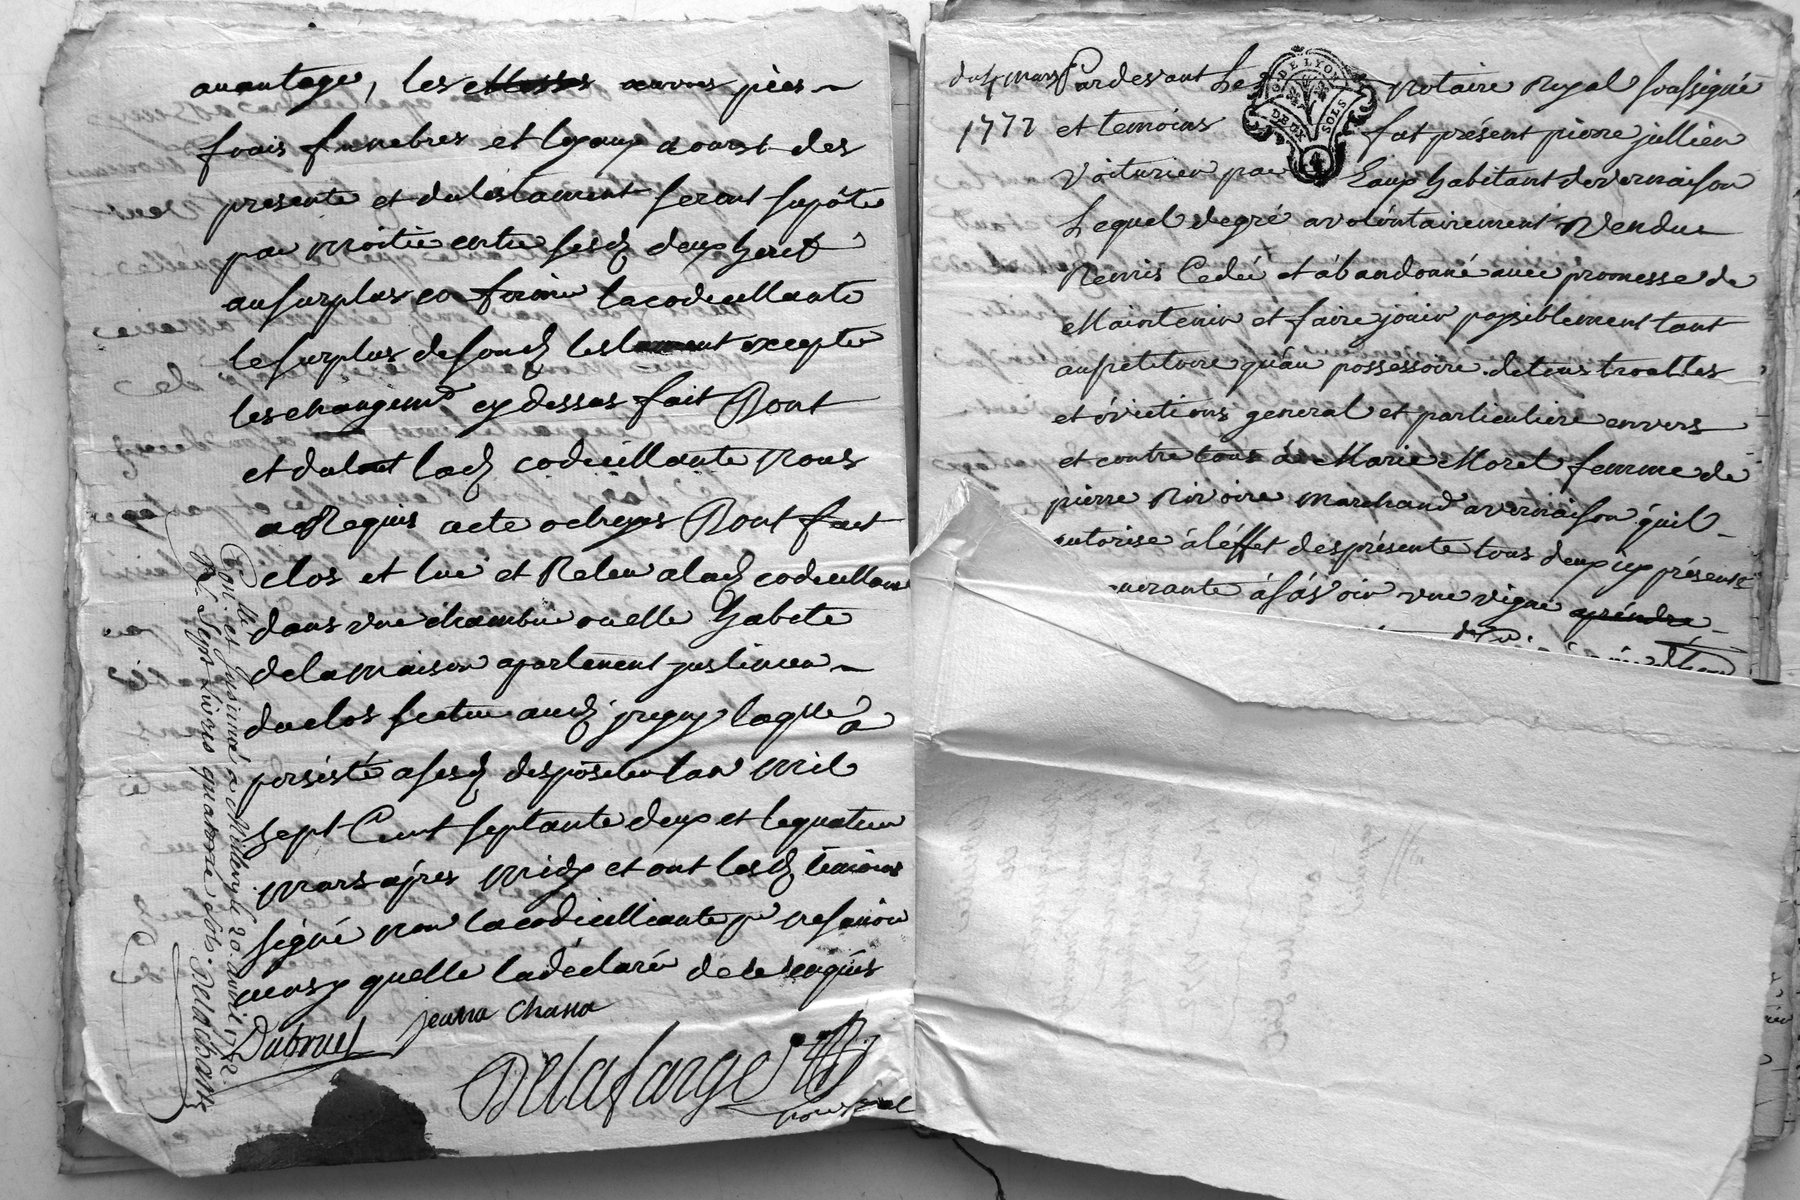 avantage, les messes œuvres pies
frais funebres et loyaux coust des
presente et du testament seront supôté
par moitié entre sesd deux heret
au surplus confirme la codicillante
le surplus de sond testament excepte
les changemt cy dessus fait Dont
et du tout lad codicillante Nous
a Requis acte octroyé Dont fait
clos et lue et Releu a lad codicillante
dans une chambre ou elle habite
de la maison apartenent justinien
duclos scetue aud jrigny laqlle a
persisté a sesd disposition Lan Mil
sept Cent septante deux et le quatre
Mars apres Midy et ont lesd témoins
signé non la codicillante pr ne savoir
ainsy quelle la déclaré de ce enquis
Dubruel jeana Chana
Delafarge
Conllé et insinué a Millery le 20 avril 1772
R. Sept Livres quatorze sols Delachan
du 4 mars
1772
G. DE LYON
DEUX SOLS
Pardevant Le Notaire Royal soussigné
et temoins fut présent pierre jullien
Voiturier par Eaux habitant de vernaison
Lequel de gré a volontairement Vendu
Remis Cedé et abandonné avec promesse de
Maintenir et faire jouir paysiblement tant
au petitoire qu'au possessoire de tous troubles
et évictions general et particuliere envers
et contre tous à Marie Morel femme de
pierre Rivoire marchand a vernaison qu'il
autorise à l'effet des présente tous deux icy présens
querante à sàsoir une vigne